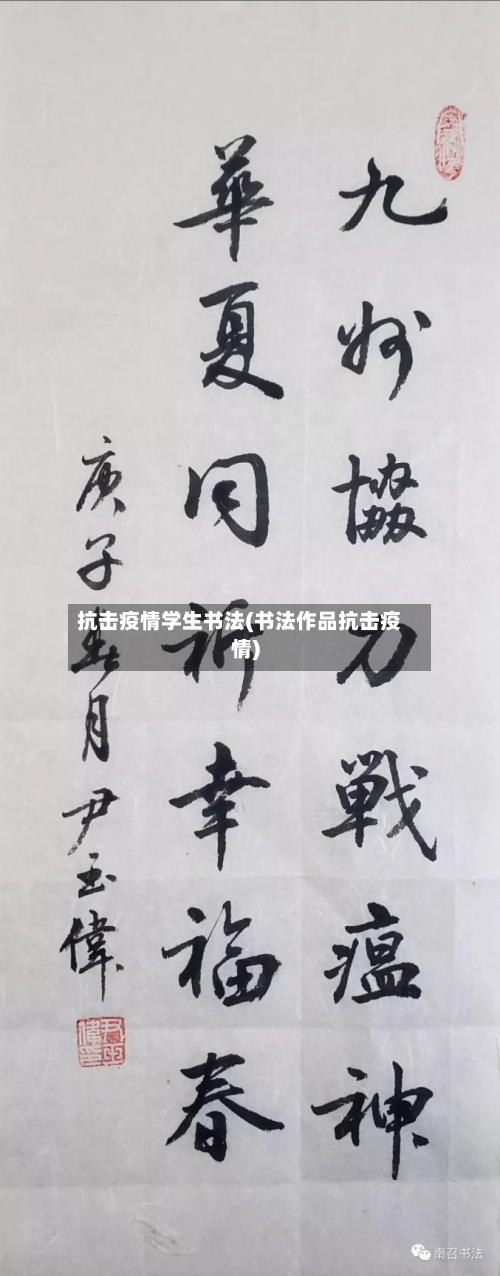 九州協力戰瘟神
華夏同祈幸福春
庚子春月尹玉偉
抗击疫情学生书法(书法作品抗击疫
情)
南召书法